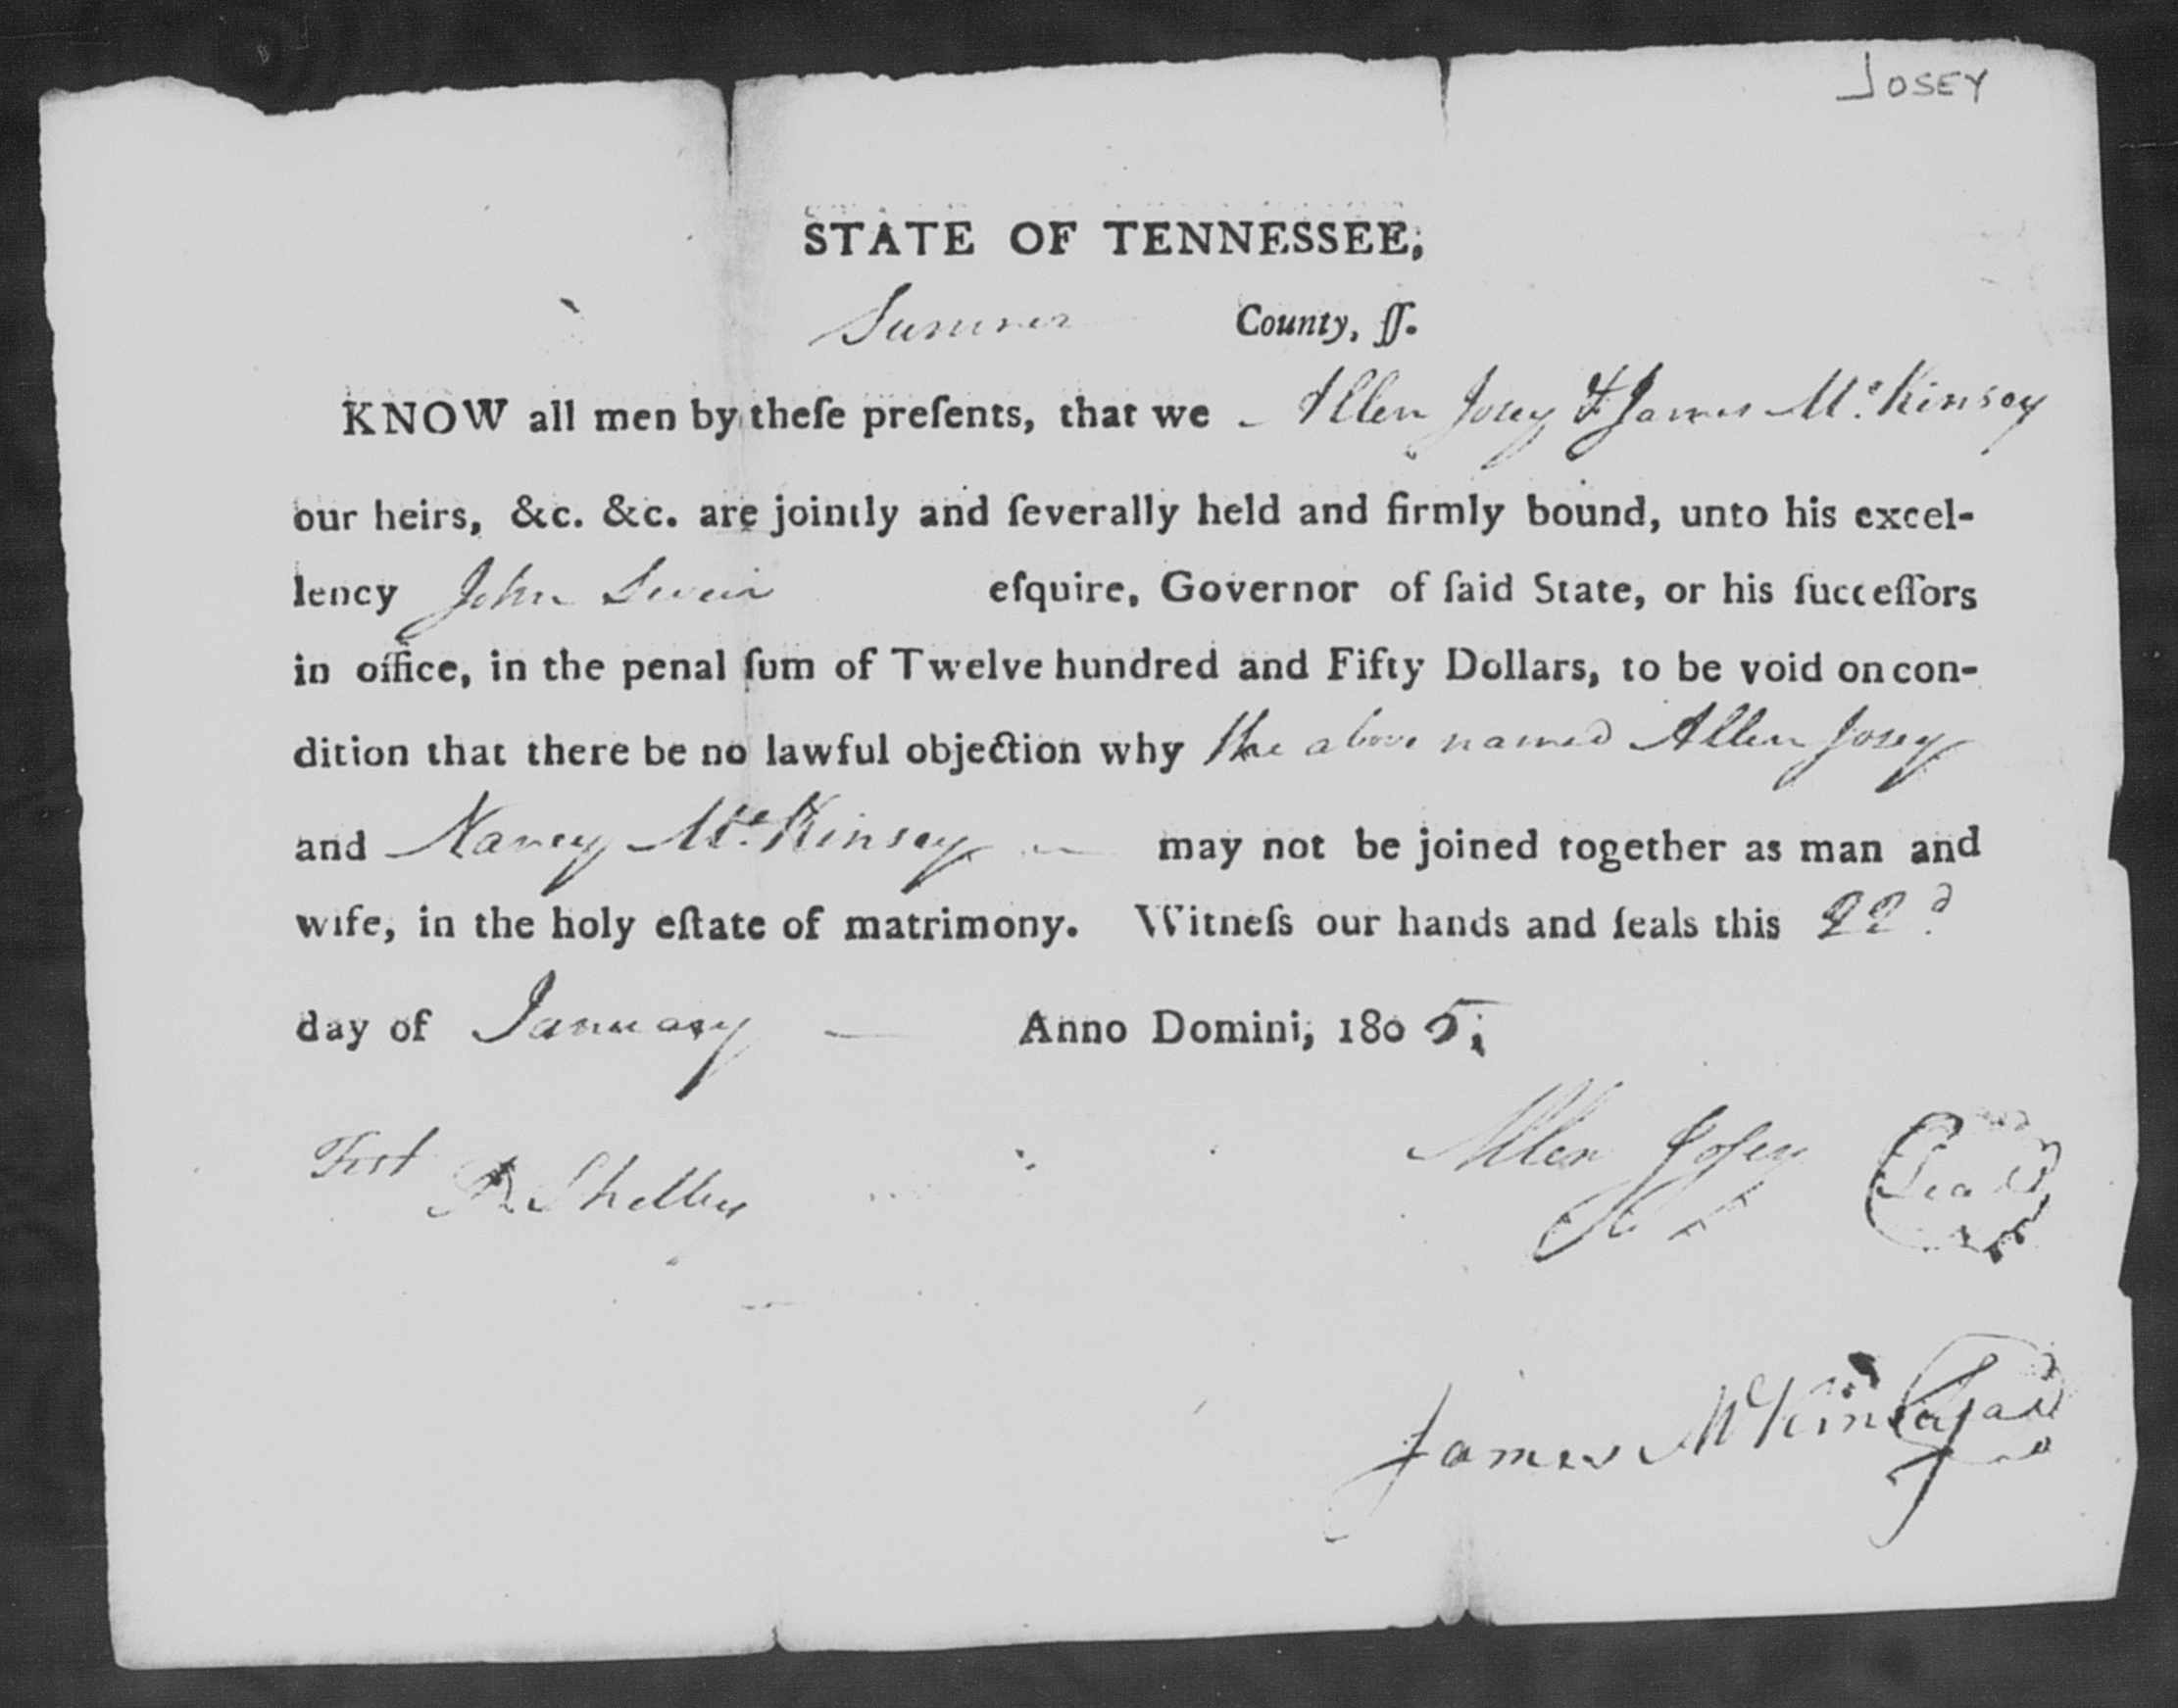 JOSEY
STATE OF TENNESSEE,
Sumner County, ſſ.
KNOW all men by theſe preſents, that we Allen Josey & James McKinsey
our heirs, &c. &c. are jointly and ſeverally held and firmly bound, unto his excel-
lency John Sevier eſquire, Governor of ſaid State, or his ſucceſſors
in office, in the penal ſum of Twelve hundred and Fifty Dollars, to be void on con-
dition that there be no lawful objection why the above named Allen Josey
and Nancy McKinsey — may not be joined together as man and
wife, in the holy eſtate of matrimony. Witneſs our hands and ſeals this 22d
day of January — Anno Domini, 1805;
Test
Shelby
Allen Joſey Seal
James McKinsey Seal